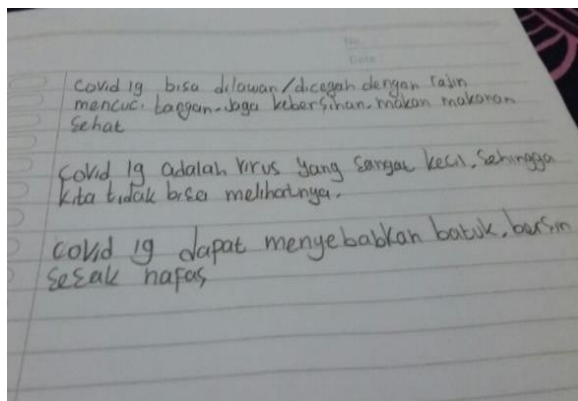 No
Date
covid 19 bisa dilawan/dicegah dengan rajin
mencuci tangan. Jaga kebersihan. makan makanan
sehat
covid 19 adalah virus yang sangat kecil. sehingga
kita tidak bisa melihatnya.
covid 19 dapat menyebabkan batuk. bersin
sesak nafas